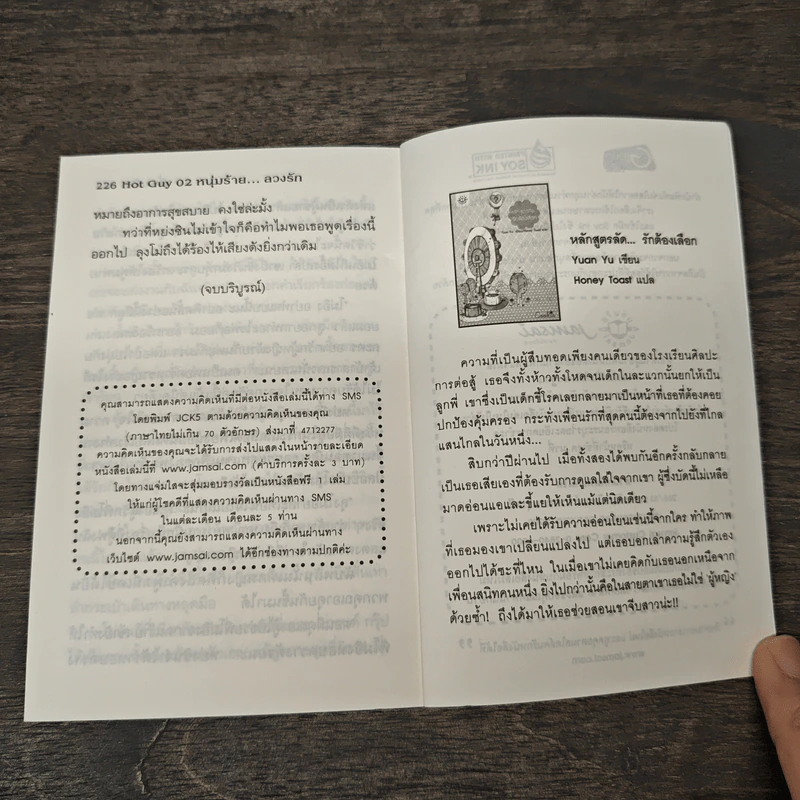 226 Hot Guy 02 หนุ่มร้าย... ลวงรัก
หมายถึงอาการสุขสบาย คงใช่ล่ะมั้ง
ทว่าที่หย่งซินไม่เข้าใจก็คือทำไมพอเธอพูดเรื่องนี้
ออกไป ลุงโม่ถึงได้ร้องไห้เสียงดังยิ่งกว่าเดิม
(จบบริบูรณ์)
คุณสามารถแสดงความคิดเห็นที่มีต่อหนังสือเล่มนี้ได้ทาง SMS
โดยพิมพ์ JCK5 ตามด้วยความคิดเห็นของคุณ
(ภาษาไทยไม่เกิน 70 ตัวอักษร) ส่งมาที่ 4712277
ความคิดเห็นของคุณจะได้รับการส่งไปแสดงในหน้ารายละเอียด
หนังสือเล่มนี้ที่ www.jamsai.com (ค่าบริการครั้งละ 3 บาท)
โดยทางแจ่มใสจะสุ่มมอบรางวัลเป็นหนังสือฟรี 1 เล่ม
ให้แก่ผู้โชคดีที่แสดงความคิดเห็นผ่านทาง SMS
ในแต่ละเดือน เดือนละ 5 ท่าน
นอกจากนี้คุณยังสามารถแสดงความคิดเห็นผ่านทาง
เว็บไซต์ www.jamsai.com ได้อีกช่องทางตามปกติค่ะ
หลักสูตรลัด... รักต้องเลือก
Yuan Yu เขียน
Honey Toast แปล
ความที่เป็นผู้สืบทอดเพียงคนเดียวของโรงเรียนศิลปะ
การต่อสู้ เธอจึงทั้งห้าวทั้งโหดจนเด็กในละแวกนั้นยกให้เป็น
ลูกพี่ เขาซึ่งเป็นเด็กขี้โรคเลยกลายมาเป็นหน้าที่เธอที่ต้องคอย
ปกป้องคุ้มครอง กระทั่งเพื่อนรักที่สุดคนนี้ต้องจากไปยังที่ไกล
แสนไกลในวันหนึ่ง...
สิบกว่าปีผ่านไป เมื่อทั้งสองได้พบกันอีกครั้งกลับกลาย
เป็นเธอเสียเองที่ต้องรับการดูแลใส่ใจจากเขา ผู้ซึ่งบัดนี้ไม่เหลือ
มาดอ่อนแอและขี้แยให้เห็นแม้แต่นิดเดียว
เพราะไม่เคยได้รับความอ่อนโยนเช่นนี้จากใคร ทำให้ภาพ
ที่เธอมองเขาเปลี่ยนแปลงไป แต่เธอบอกเล่าความรู้สึกตัวเอง
ออกไปได้ซะที่ไหน ในเมื่อเขาไม่เคยคิดกับเธอนอกเหนือจาก
เพื่อนสนิทคนหนึ่ง ยิ่งไปกว่านั้นคือในสายตาเขาเธอไม่ใช่ ผู้หญิง
ด้วยซ้ำ! ถึงได้มาให้เธอช่วยสอนเขาจีบสาวน่ะ!!